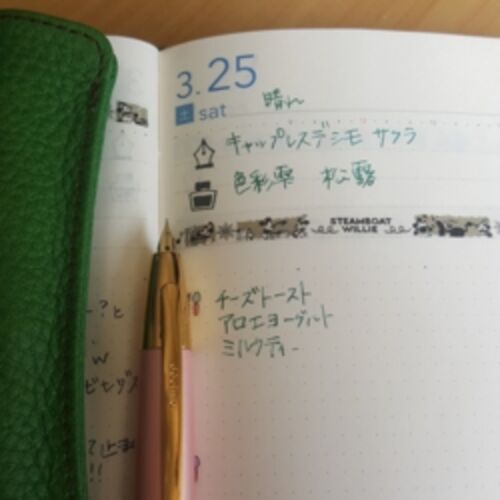 3.25
土 sat 晴れ
キャップレスデシモ サクラ
色彩雫 松露
STEAMBOAT
WILLIE
チーズトースト
アロエヨーグルト
ミルクティー
ー?と
w
!!